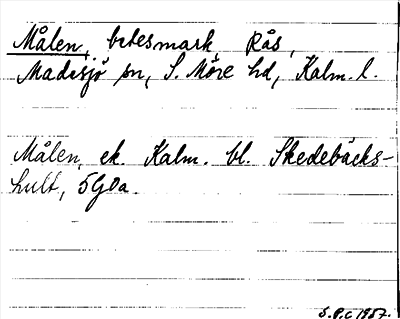 Målen, betesmark, Rås,
Madesjö sn, S. Möre hd, Kalm. l.
Målen, ek. Kalm. bl. Skedebäcks-
hult, 5G0a.
S.P.C 1957.